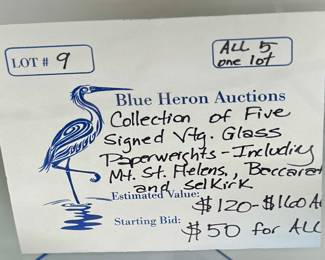 LOT # 9
ALL 5
one lot
Blue Heron Auctions
Collection of Five
Signed Vtg. Glass
Paperweights - Including
Mt. St. Helens., Baccarat
and Selkirk
Estimated Value:
$120-$160
Starting Bid:
$50 for ALL